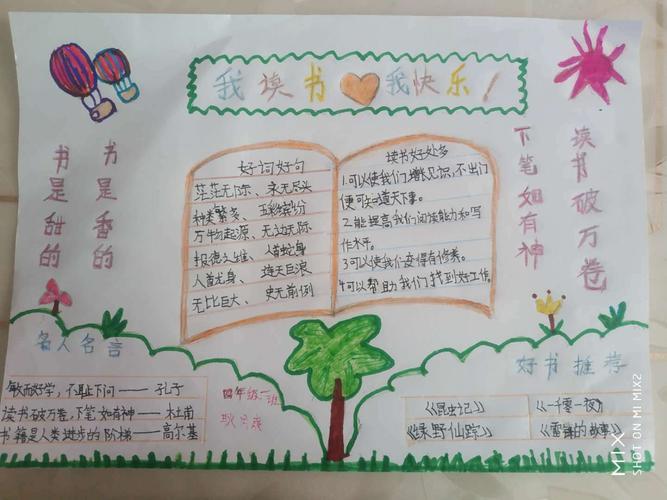 我读书我快乐！
书是香的
书是甜的
读书破万卷
下笔如有神
好词好句
茫茫无际、永无尽头
种类繁多、五彩缤纷
万物起源、无边无际
人首蛇身
人首龙身、天巨浪
无比巨大、史无前例
读书好处多
1.可以使我们增长见识,不出门
便可知道天下事。
2.能提高我们阅读能力和写
作水平。
3可以使我们变得有修养。
4可以帮助我们找到好工作。
名人名言
敏而好学,不耻下问——孔子
读书破万卷,下笔如有神——杜甫
书籍是人类进步的阶梯——高尔基
四年级一班
好书推荐
《昆虫记》 《一千零一夜》
《绿野仙踪》 《雷锋的故事》
MIX
SHOT ON MI MIX2